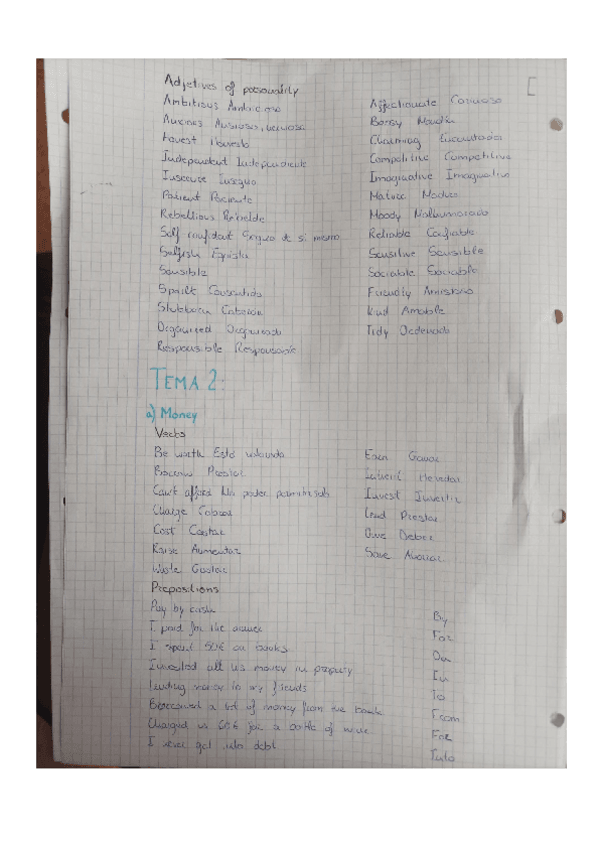 Adjetives of personality
Ambitious
Affectionate Cariñoso
Anxious Ansioso, nervioso
Bossy Mandón
Honest Honesto
Charming Encantador
Independent Independiente
Competitive Competitivo
Insecure Inseguro
Imaginative Imaginativo
Patient Paciente
Mature Maduro
Rebellious Rebelde
Moody Malhumorado
Self confident Seguro de si mismo
Reliable Confiable
Selfish Egoista
Sensitive Sensible
Sensible
Sociable Sociable
Spoilt Consentido
Friendly Amistoso
Stubborn Cabezón
Kind Amable
Organised Organizado
Tidy Ordenado
Responsible Responsable
TEMA 2:
a) Money
Verbs
Be worth Está valorado
Earn Ganar
Borrow Prestar
Inherit Heredar
Can't afford No poder permitirselo
Invest Invertir
Charge Cobrar
Lend Prestar
Cost Costar
Owe Deber
Raise Aumentar
Save Ahorrar
Waste Gastar
Prepositions
Pay by cash
By
I paid for the dinner
For
I spent 50€ on books
On
Invested all his money in property
In
Lending money to my friends
To
Borrowed a lot of money from the bank
From
Charged us 60€ for a bottle of wine
For
I never get into debt
Into